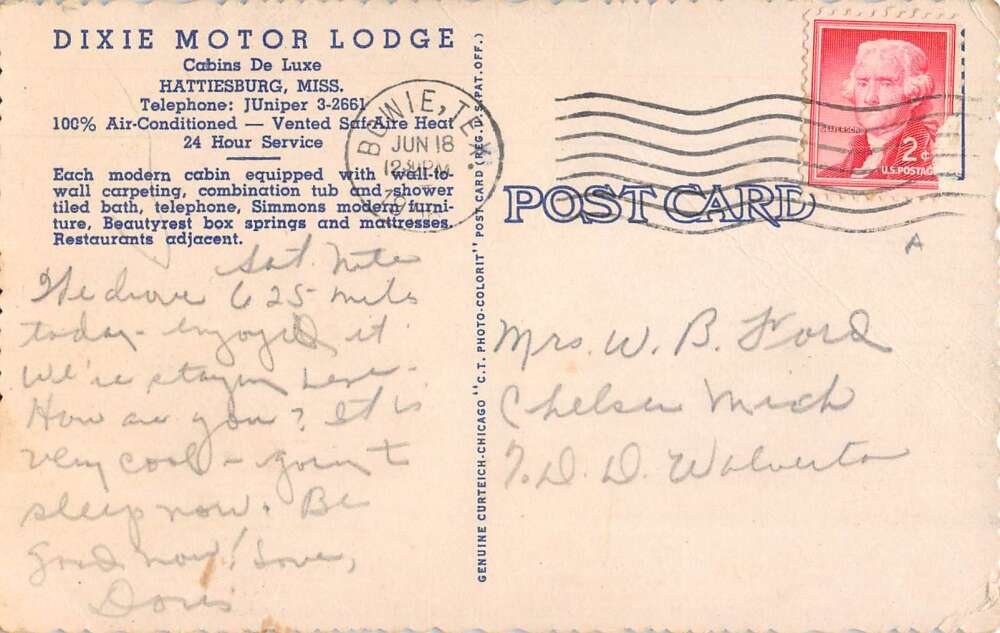 DIXIE MOTOR LODGE
Cabins De Luxe
HATTIESBURG, MISS.
Telephone: JUniper 3-2661
100% Air-Conditioned — Vented Saf-Aire Heat
24 Hour Service
Each modern cabin equipped with wall-to-
wall carpeting, combination tub and shower
tiled bath, telephone, Simmons modern furni-
ture, Beautyrest box springs and mattresses.
Restaurants adjacent.
Sat. Nite
We drove 625 mils
today - enjoyed it
We're staying here.
How are you? It is
very cool - going to
sleep now. Be
good now! Love,
Doris
GENUINE CURTEICH-CHICAGO "C.T. PHOTO-COLORIT" POST CARD (REG. U.S. PAT. OFF.)
BOWIE, TEX.
JUN 18
12 30 PM
JEFFERSON
2¢
U.S. POSTAG
POST CARD
A
Mrs. W. B. Ford
Chelsea Mich
D. D. Wolverton